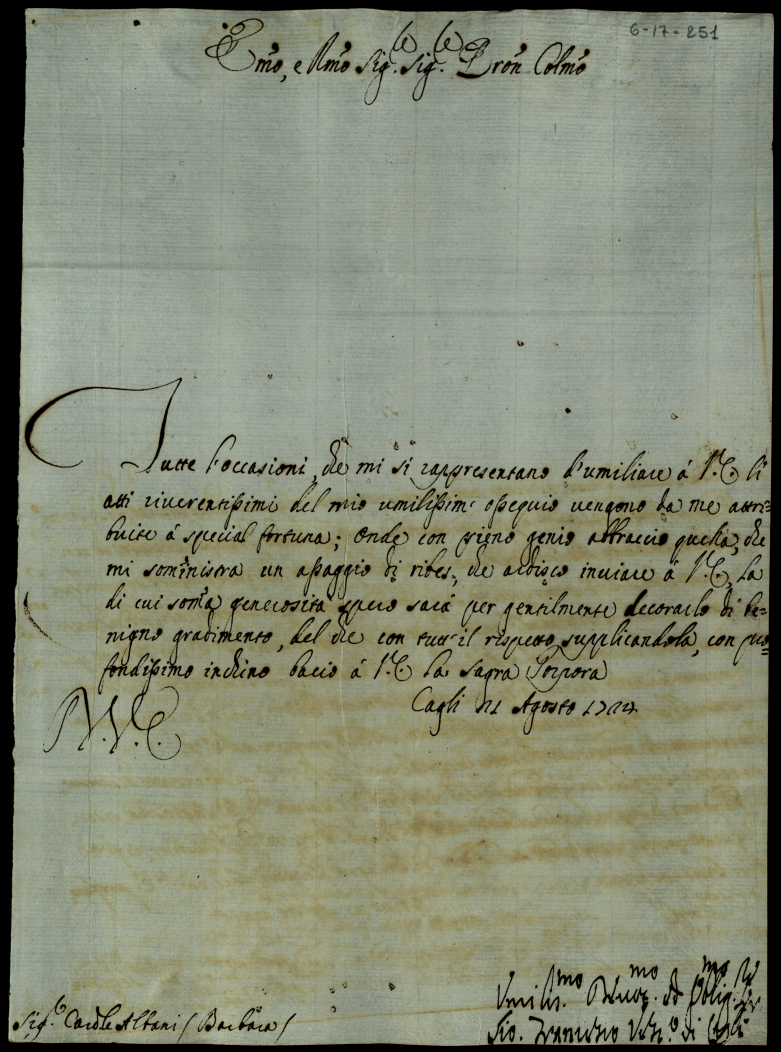 6-17-251
Emo, e Rmo Sigre. Sigre. Pron Colmo
Tutte l'occasioni, che mi si rappresentano d'umiliare á V.E. li
atti riverentissimi del mio umilissimo ossequio vengono da me attri=
buite á special fortuna; Onde con pieno genio abbraccio quella, che
mi somministra un assaggio di ribes, che ardisco inviare á V.E., la
di cui somma generosità spero sarà per gentilmente decorarlo di be=
nigno gradimento, del che con tutt'il rispetto supplicandola, con pro=
fondissimo inchino bacio á V.E. la Sagra Porpora
Cagli 21 Agosto
V.E.
Umilissmo Obligmo
di Cagli
Sigre. Cardle Albani